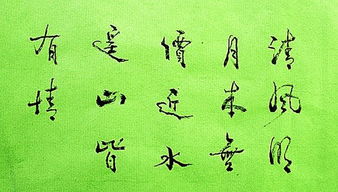 清風明
月本無
價近水
遥山皆
有情